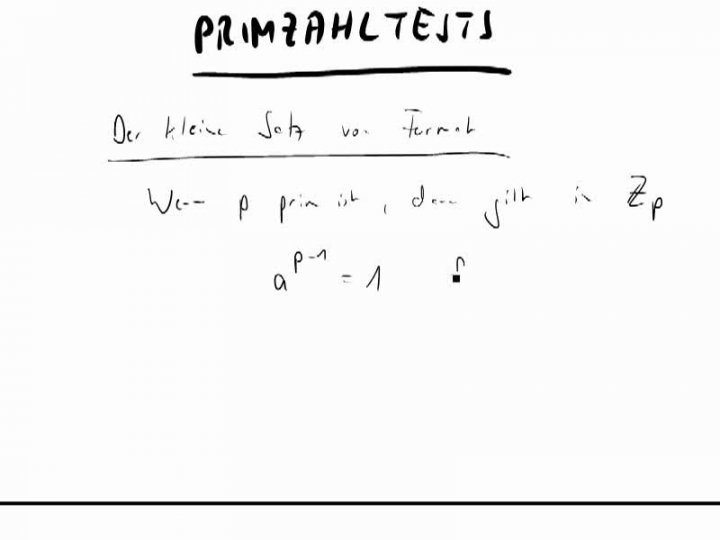 PRIMZAHLTESTS
Der kleine Satz von Fermat
Wenn p prim ist, dann gilt in ℤₚ
aᵖ⁻¹ = 1